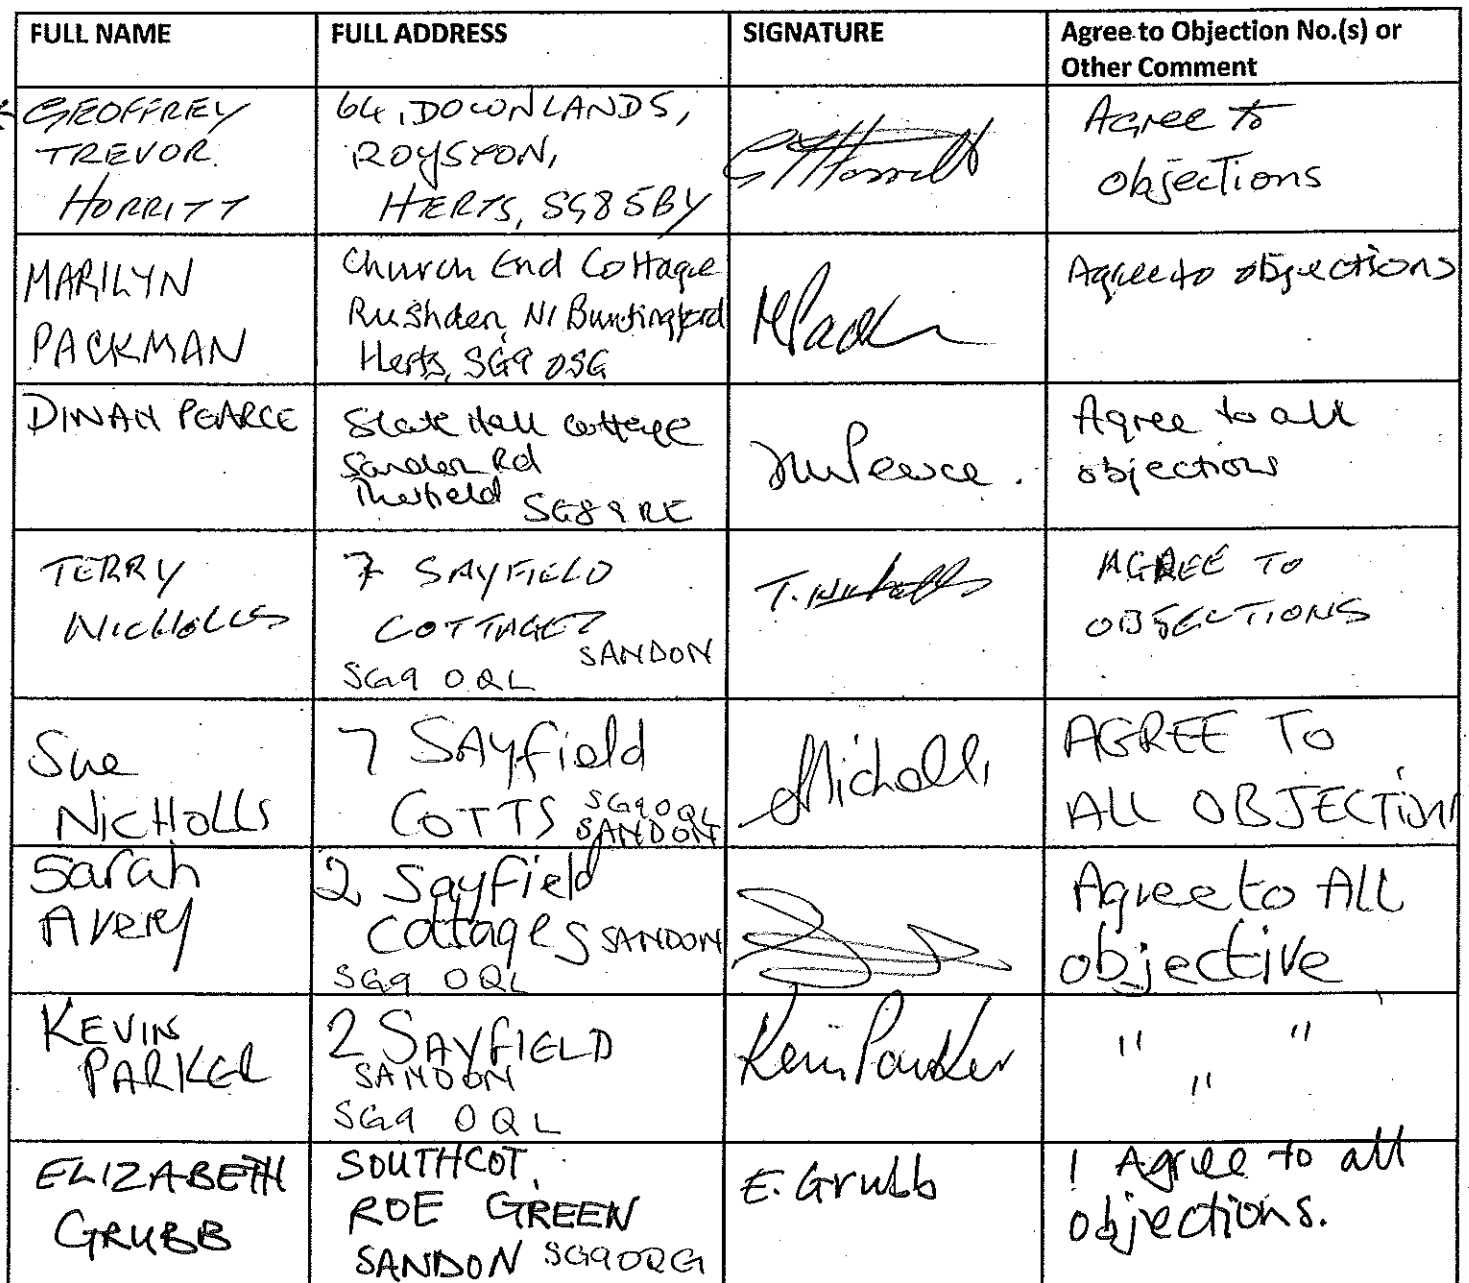 FULL NAME
FULL ADDRESS
SIGNATURE
Agree to Objection No.(s) or
Other Comment
GEOFFREY
TREVOR.
HORRITT
64, DOWNLANDS,
ROYSTON,
HERTS, SG8 5BY
GTHorritt
Agree to
objections
MARILYN
PACKMAN
Church End Cottage
Rushden, Nr Buntingford
Herts, SG9 0SG
MPack
Agree to objections
DINAH PEARCE
Slate Hall Cottage
Sandon Rd
Therfield
SG8 9RE
Pearce.
Agree to all
objections
TERRY
NICHOLLS
7 SAYFIELD
COTTAGES
SANDON
SG9 0QL
T. Nicholls
AGREE TO
OBJECTIONS
Sue
NICHOLLS
7 SAYfield
COTTS SG9 0QL
SANDON
SNicholls
AGREE TO
ALL OBJECTIONS
Sarah
Avery
2 Sayfield
Cottages SANDON
SG9 0QL
Agree to All
objective
KEVIN
PARKER
2 SAYFIELD
SANDON
SG9 0QL
Kevin Parker
" "
"
ELIZABETH
GRUBB
SOUTHCOT,
ROE GREEN
SANDON SG9 0QG
E. Grubb
I Agree to all
objections.